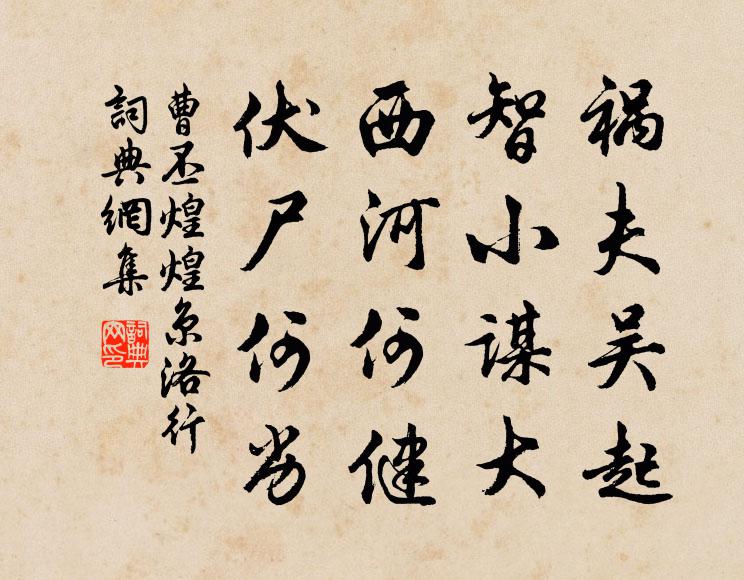 祸夫吴起
智小谋大
西河何健
伏尸何劣
曹丕煌煌京洛行
詞典網集
詞典網印